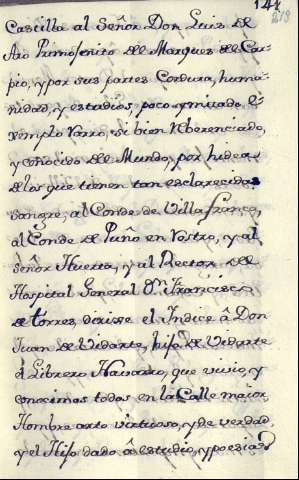 144
213
Castilla al Señor Don Luis de
Aro Primogenito del Marques del Car-
pio, y por sus partes Cordura, huma-
nidad, y estudios poco ymitado E-
xemplo Varro, si bien Reberenciado,
y conocido del Mundo, por hidea
de los que tienen tan esclarecida
sangre, al Conde de Villafranca,
al Conde de Puño en Rostro, y al
Señor Huerta, y al Rector del
Hospital General Dn. Francisco
de torres, dirixe el Indice â Don
Juan de Vidarte, hijo de Vidarte
el Librero Navarro, que vivio, y
conocimos todos en la Calle maior
Hombre arto virtuoso, y de verdad,
y el Hijo dado â estudio, y poesias